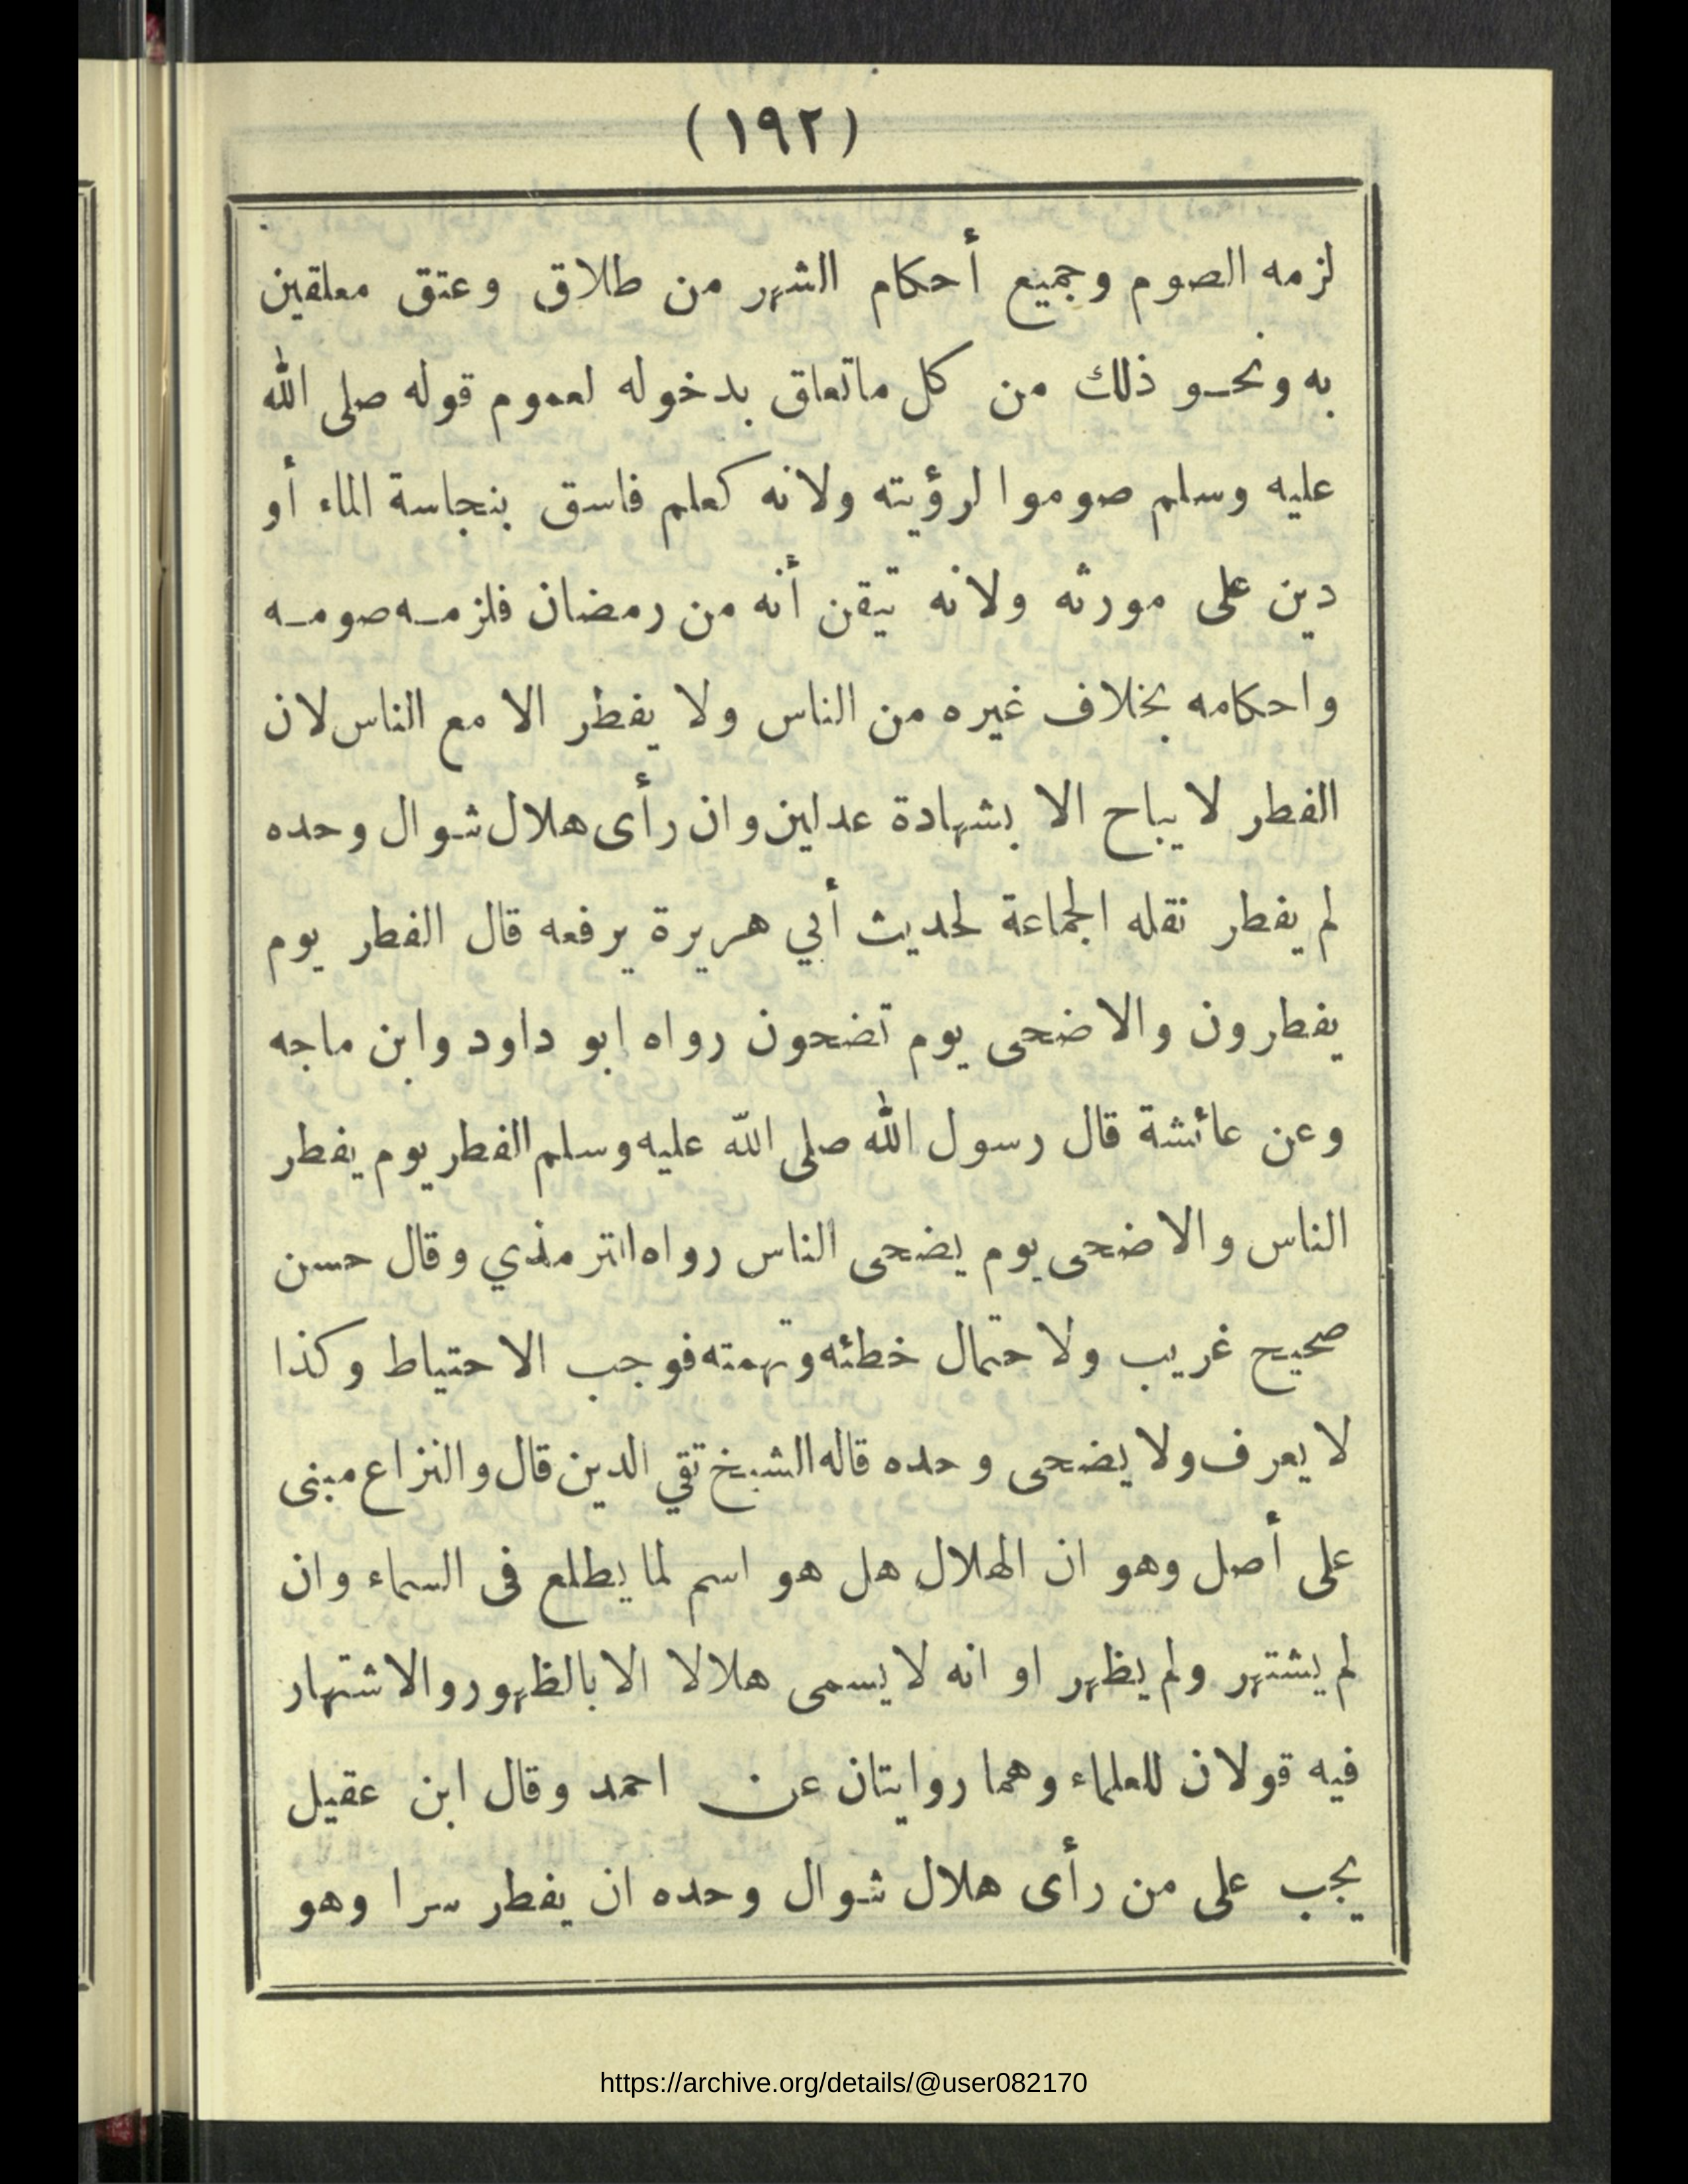 (١٩٢)
لزمه الصوم وجميع أحكام الشهر من طلاق وعتق معلقين
به ونحو ذلك من كل ماتعلق بدخوله لعموم قوله صلى الله
عليه وسلم صوموا لرؤيته ولانه كعلم فاسق بنجاسة الماء أو
دين على مورثه ولانه تيقن أنه من رمضان فلزمه صومه
واحكامه بخلاف غيره من الناس ولا يفطر الا مع الناس لان
الفطر لا يباح الا بشهادة عدلين وان رأى هلال شوال وحده
لم يفطر نقله الجماعة لحديث أبي هريرة يرفعه قال الفطر يوم
يفطرون والاضحى يوم تضحون رواه ابو داود وابن ماجه
وعن عائشة قال رسول الله صلى الله عليه وسلم الفطر يوم يفطر
الناس والاضحى يوم يضحى الناس رواه الترمذي وقال حسن
صحيح غريب ولاحتمال خطئه وتهمته فوجب الاحتياط وكذا
لا يعرف ولا يضحى وحده قاله الشيخ تقي الدين قال والنزاع مبنى
على أصل وهو ان الهلال هل هو اسم لما يطلع فى السماء وان
لم يشتهر ولم يظهر او انه لا يسمى هلالا الا بالظهور والاشتهار
فيه قولان للعلماء وهما روايتان عن احمد وقال ابن عقيل
يجب على من رأى هلال شوال وحده ان يفطر سرا وهو
https://archive.org/details/@user082170